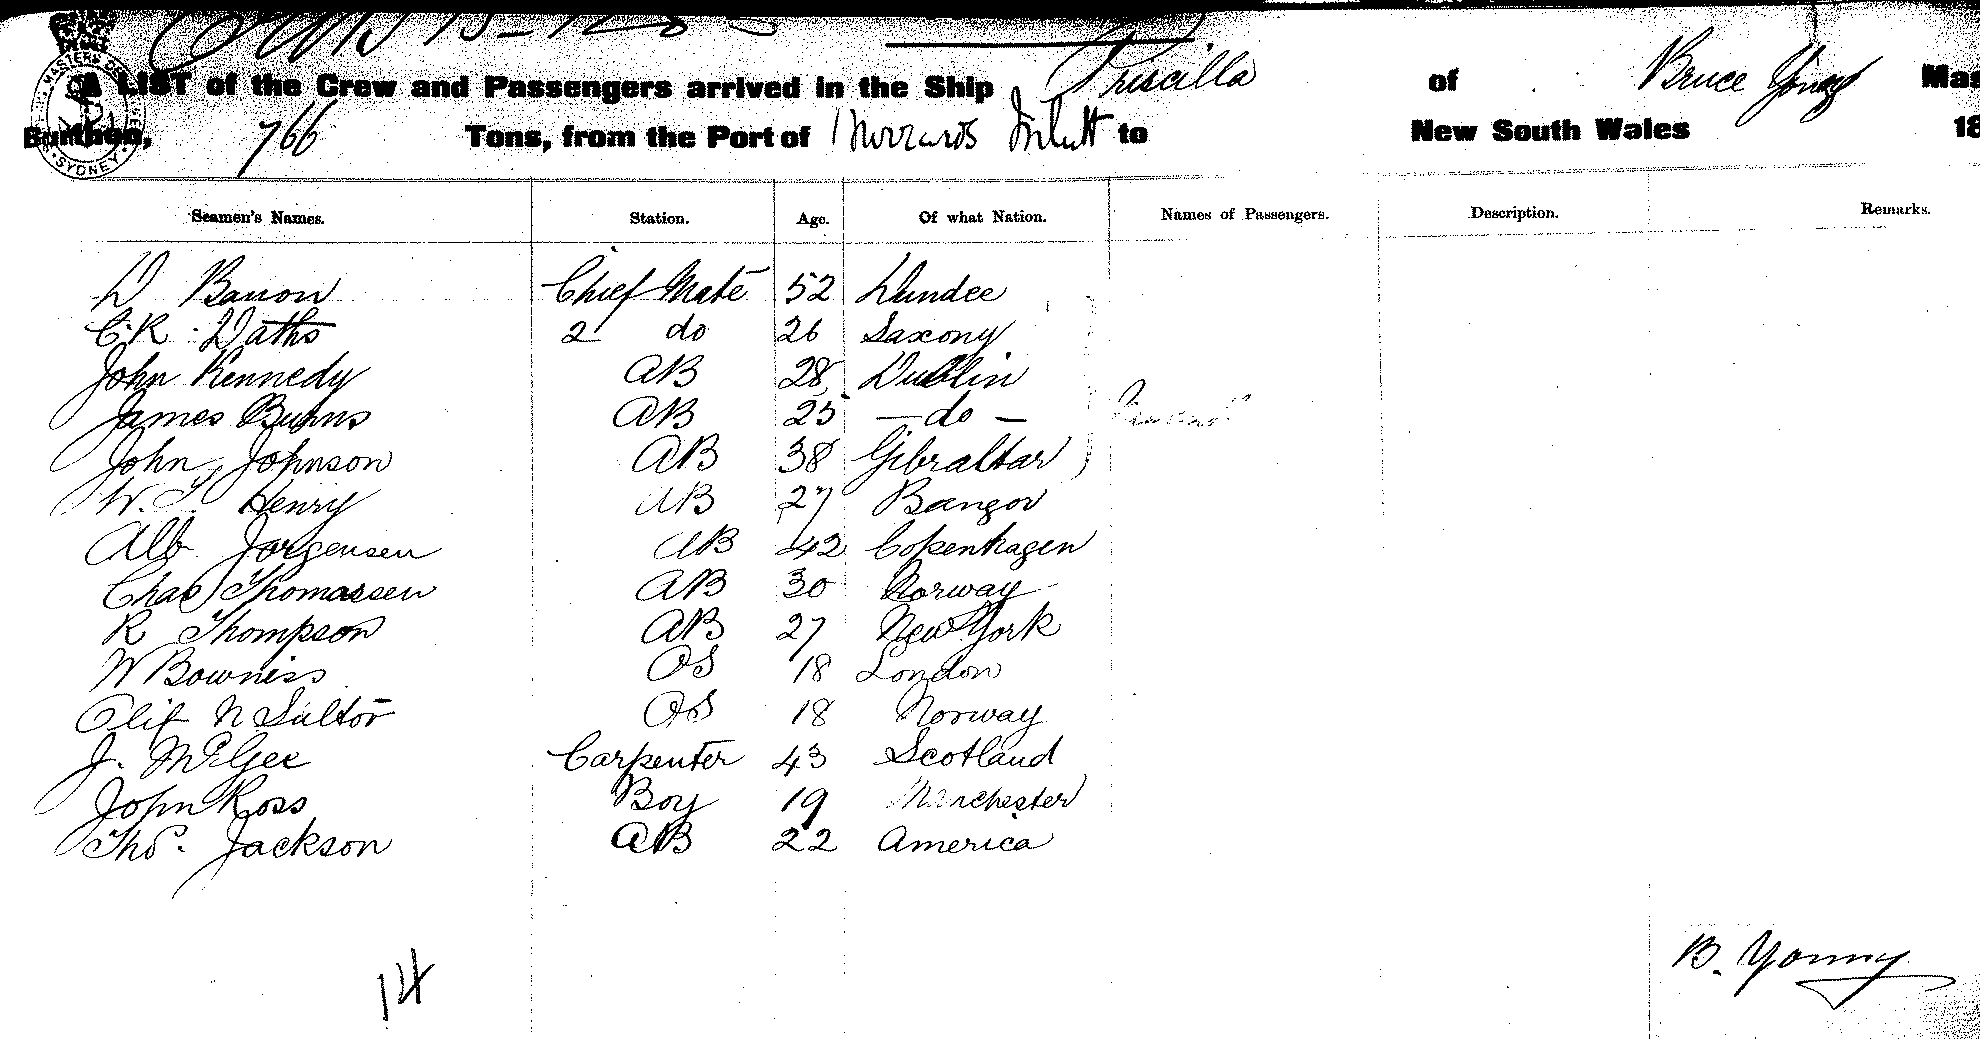 A LIST of the Crew and Passengers arrived in the Ship Priscilla of Bruce Young Mas
Burthen, 766 Tons, from the Port of to New South Wales 18
Seamen's Names. Station. Age. Of what Nation. Names of Passengers. Description. Remarks.
D Barron Chief Mate 52 Dundee
C R 2 do 26 Saxony
John Kennedy AB 28 Dublin
James Burns AB 25 — do —
John Johnson AB 38 Gibraltar
W. Henry AB 27 Bangor
Alb Jorgensen AB 42 Copenhagen
Chas Thomassen AB 30 Norway
R Thompson AB 27 New York
W Bowniss OS 18 London
N OS 18 Norway
J. McGee Carpenter 43 Scotland
John Ross Boy 19 Manchester
Thos. Jackson AB 22 America
14
B. Young